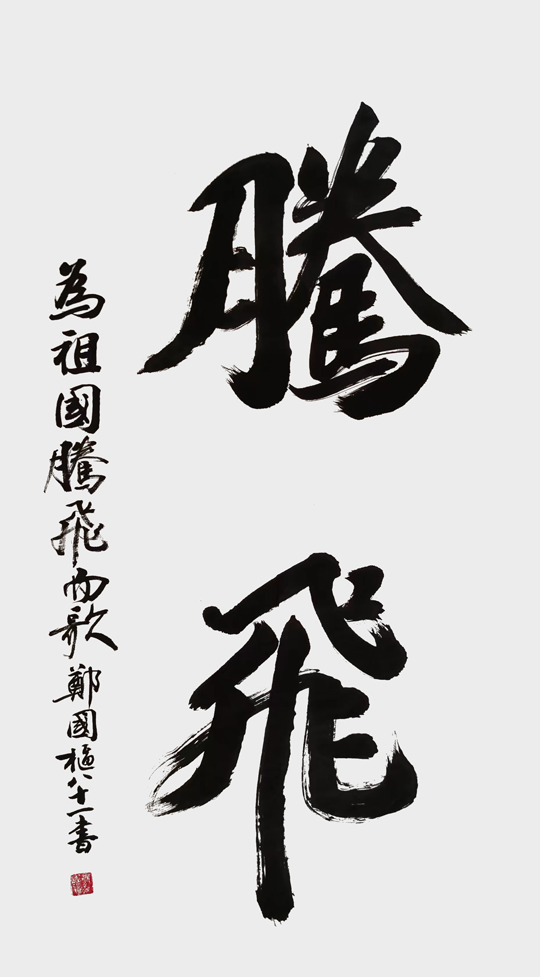 騰飛
為祖國騰飛而歌 鄭國樞八十一書